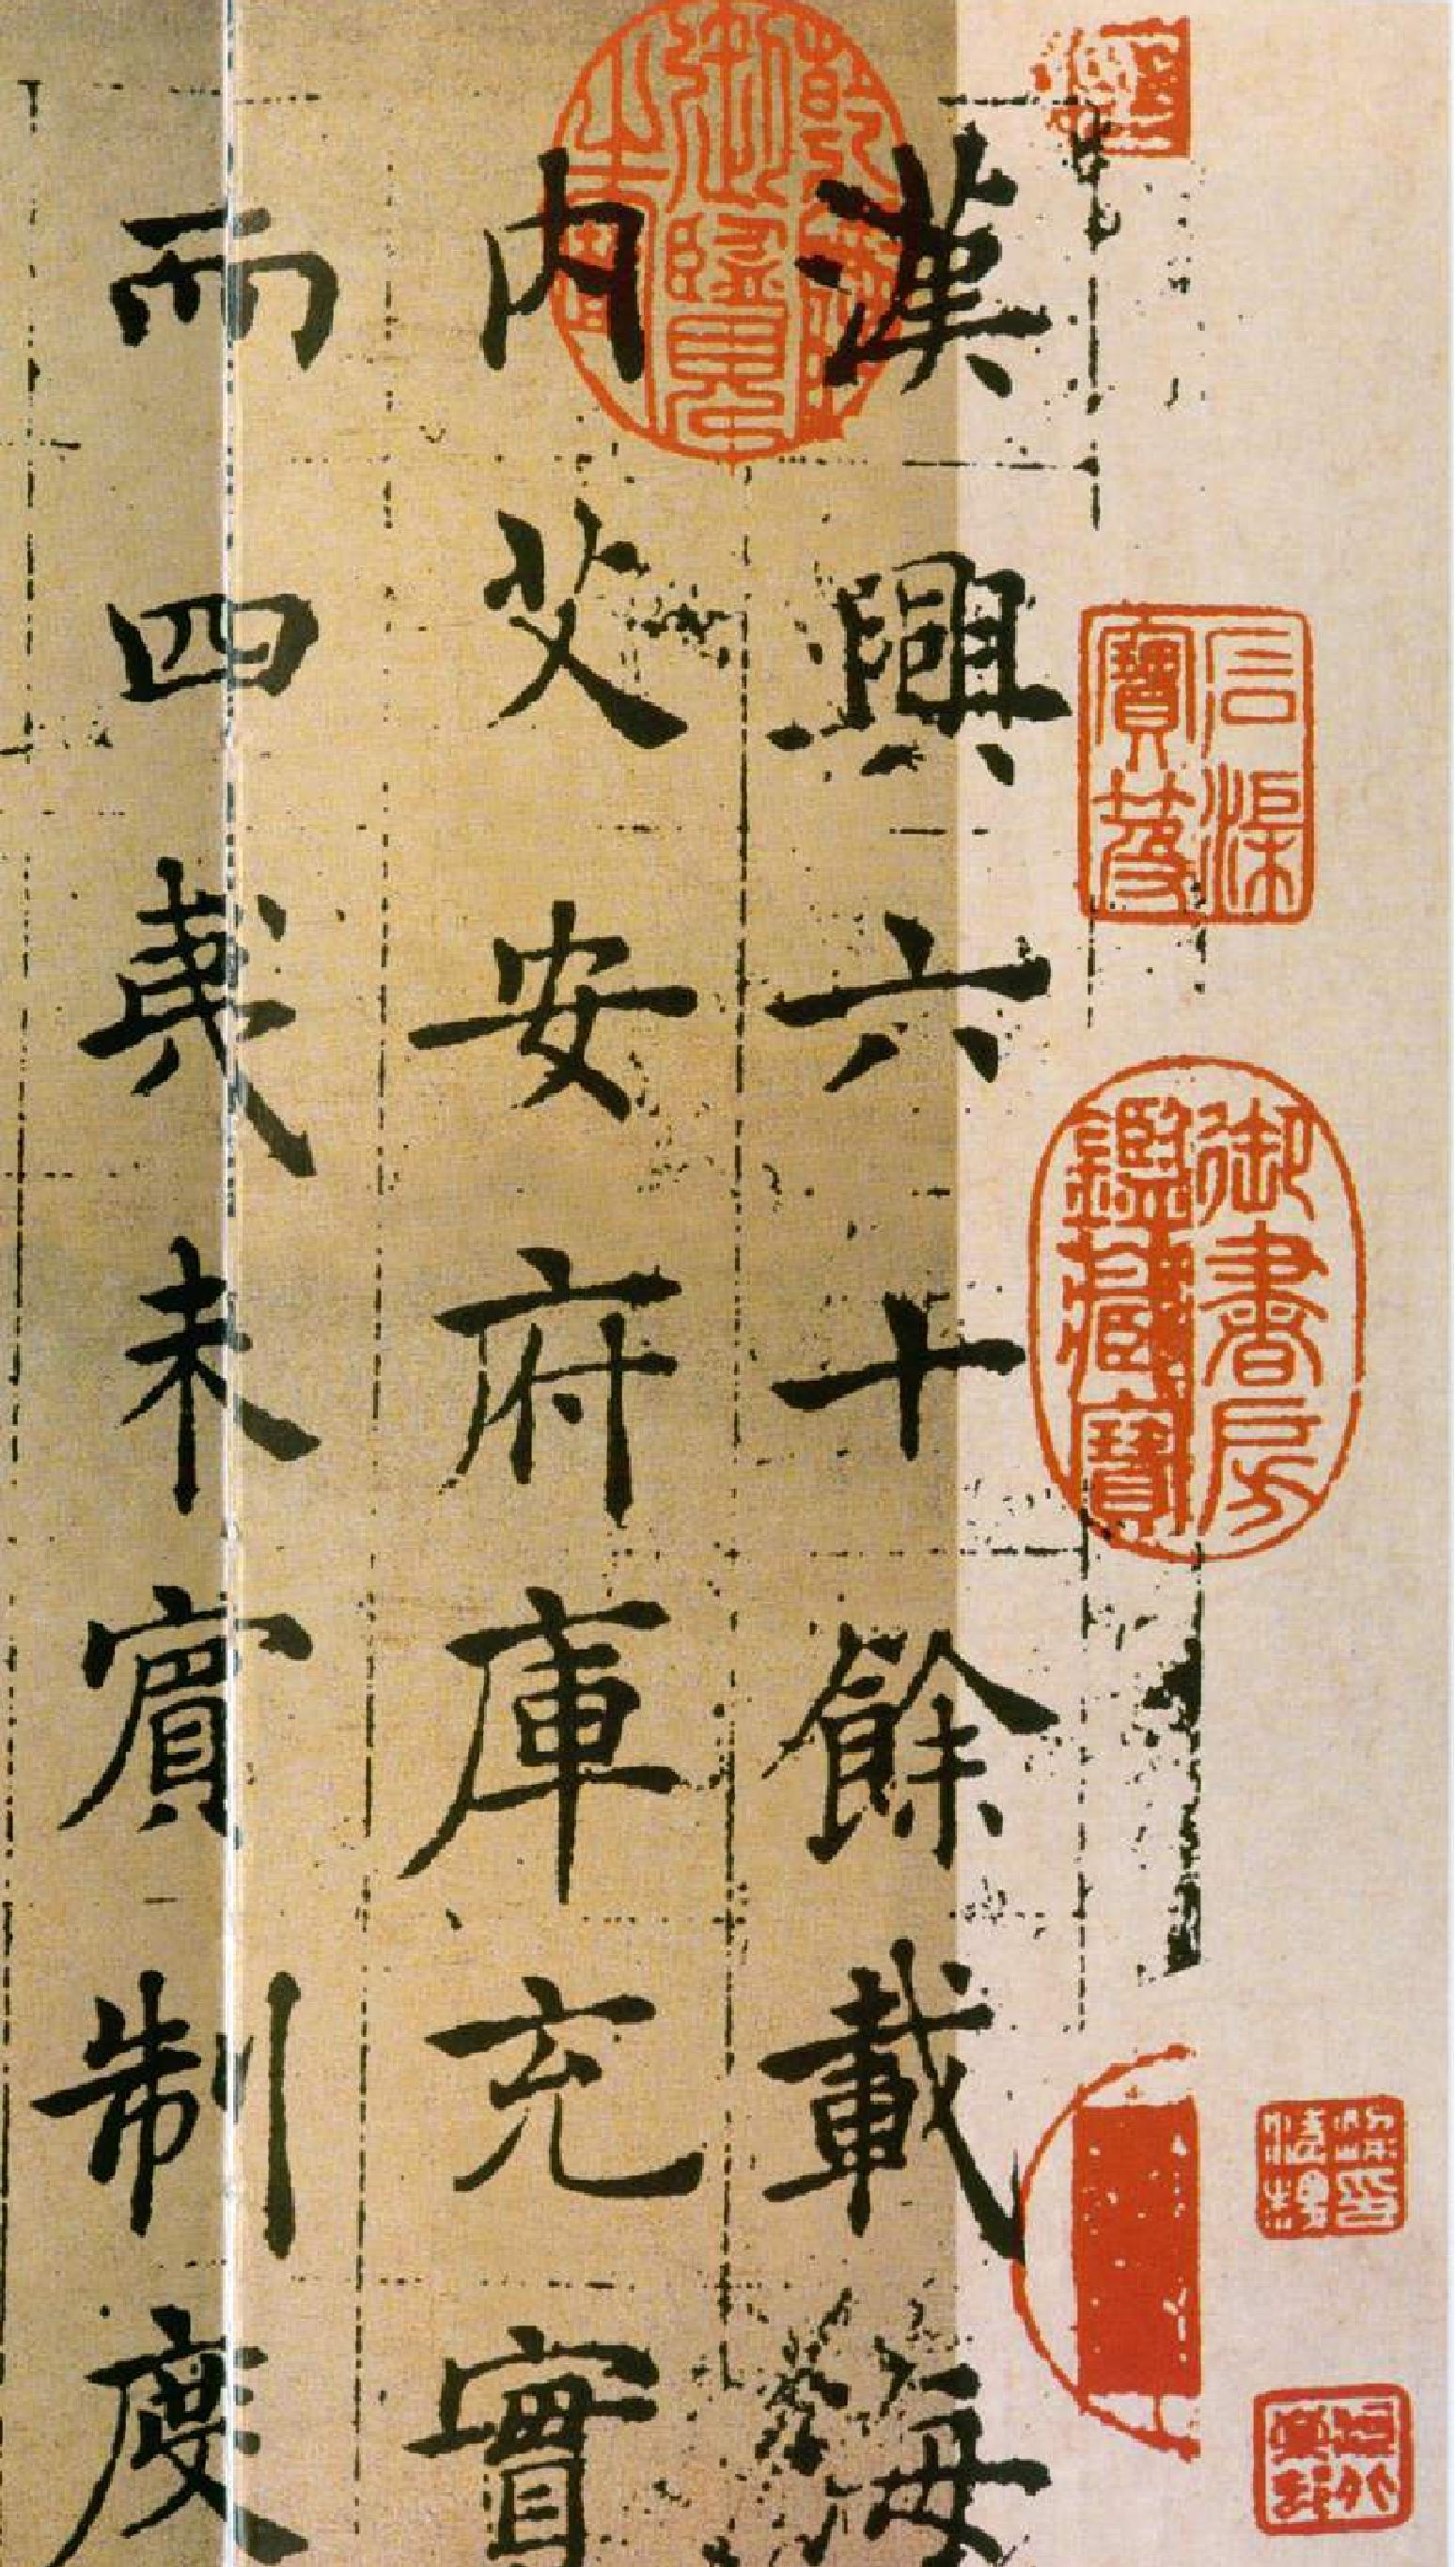 漢興六十餘載海
内艾安府庫充實
而四夷未賓制度
乾隆御覽之寶
石渠寶笈
御書房鑑藏寶